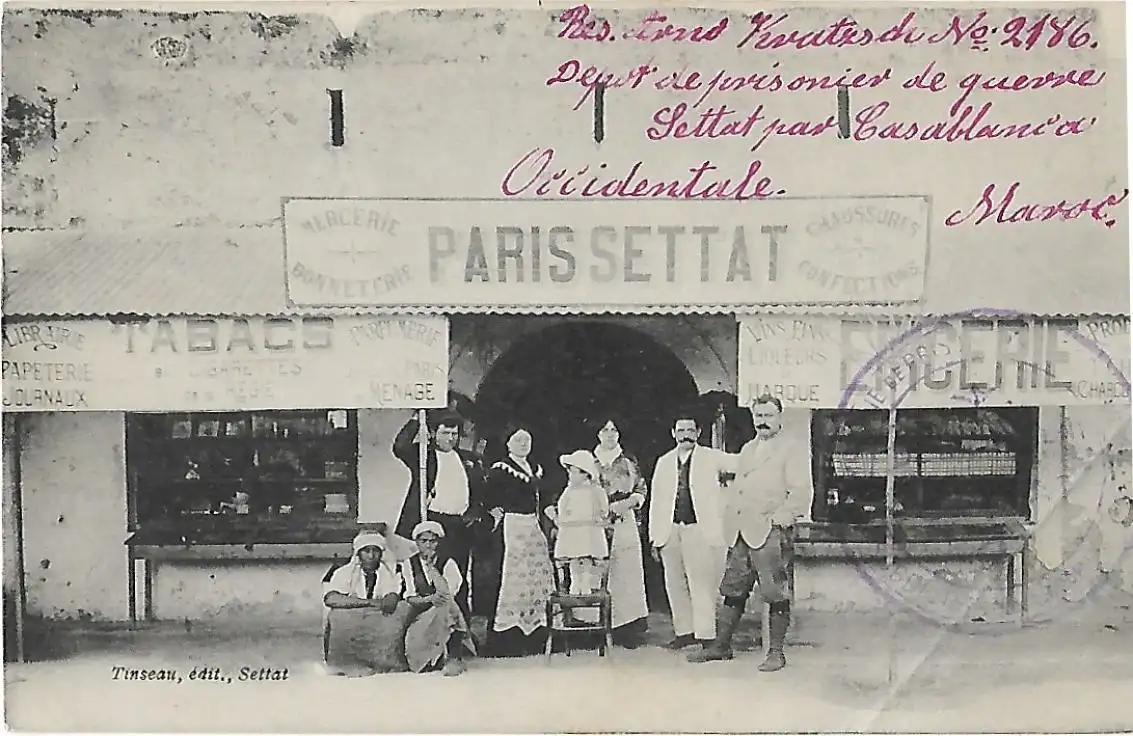 Res. Arno Kratzsch No. 2186.
Dépot de prisonier de guerre
Settat par Casablanca
Occidentale.
Maroc.
MERCERIE
BONNETERIE
PARIS SETTAT
CHAUSSURES
CONFECTIONS
LIBRAIRIE
PAPETERIE
JOURNAUX
TABACS
CIGARETTES
RÉGIE
PARFUMERIE
PARIS
MENAGE
VINS FINS
LIQUEURS
MARQUE
EPICERIE
DEPOT
Tinseau, édit., Settat